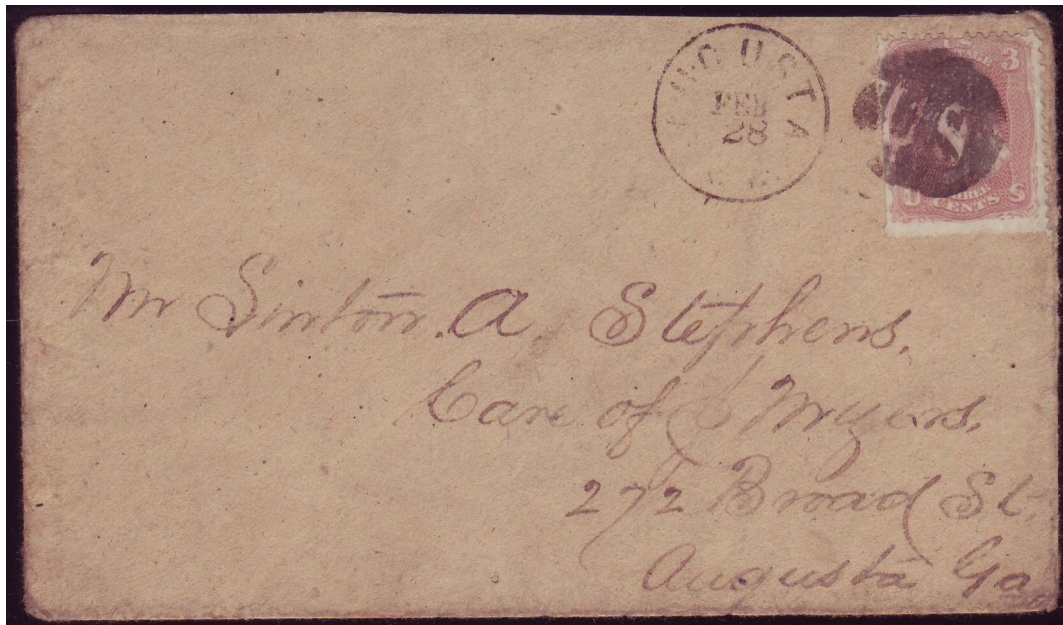 AUGUSTA
FEB
28
3
U S
U THREE S
CENTS
Mr Sinton. A. Stephens,
Care of S Myers,
272 Broad St.
Augusta Ga